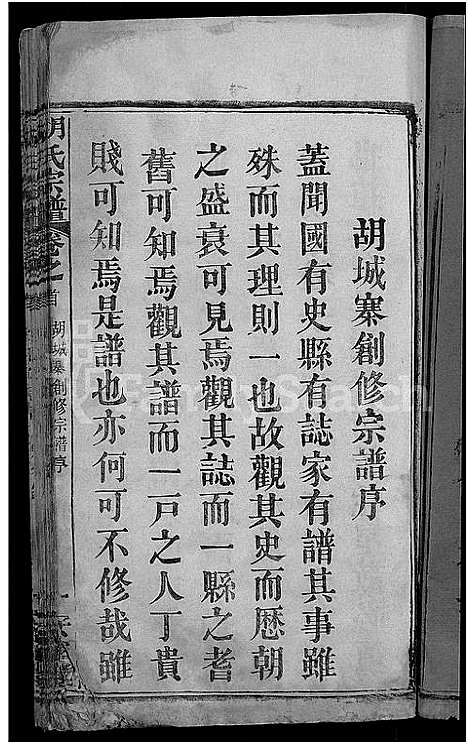 胡城寨創修宗譜序
蓋聞國有史縣有誌家有譜其事雖
殊而其理則一也故觀其史而歷朝
之盛衰可見焉觀其誌而一縣之耆
舊可知焉觀其譜而一戶之人丁貴
賤可知焉是譜也亦何可不修哉雖
胡氏宗譜 卷之首 胡城寨創修宗譜序 一
FamilySearch